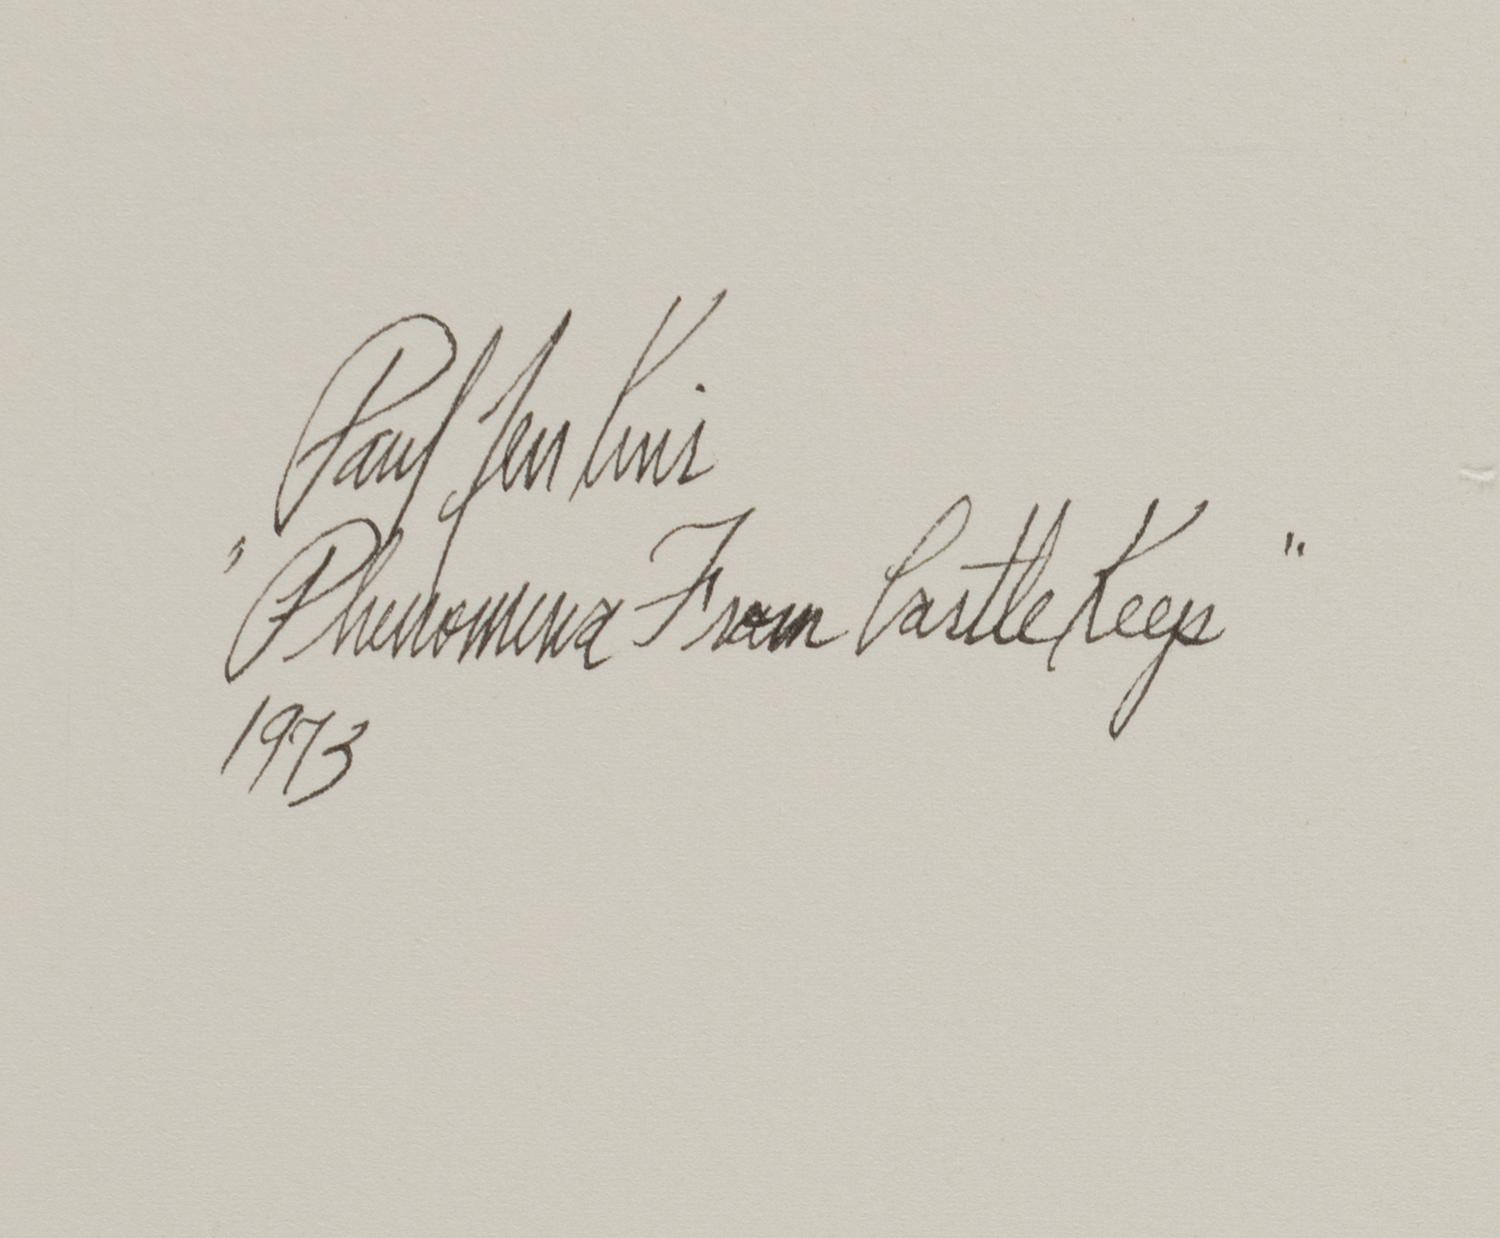 Paul Jenkins
"Phenomena From Castle Keep"
1973